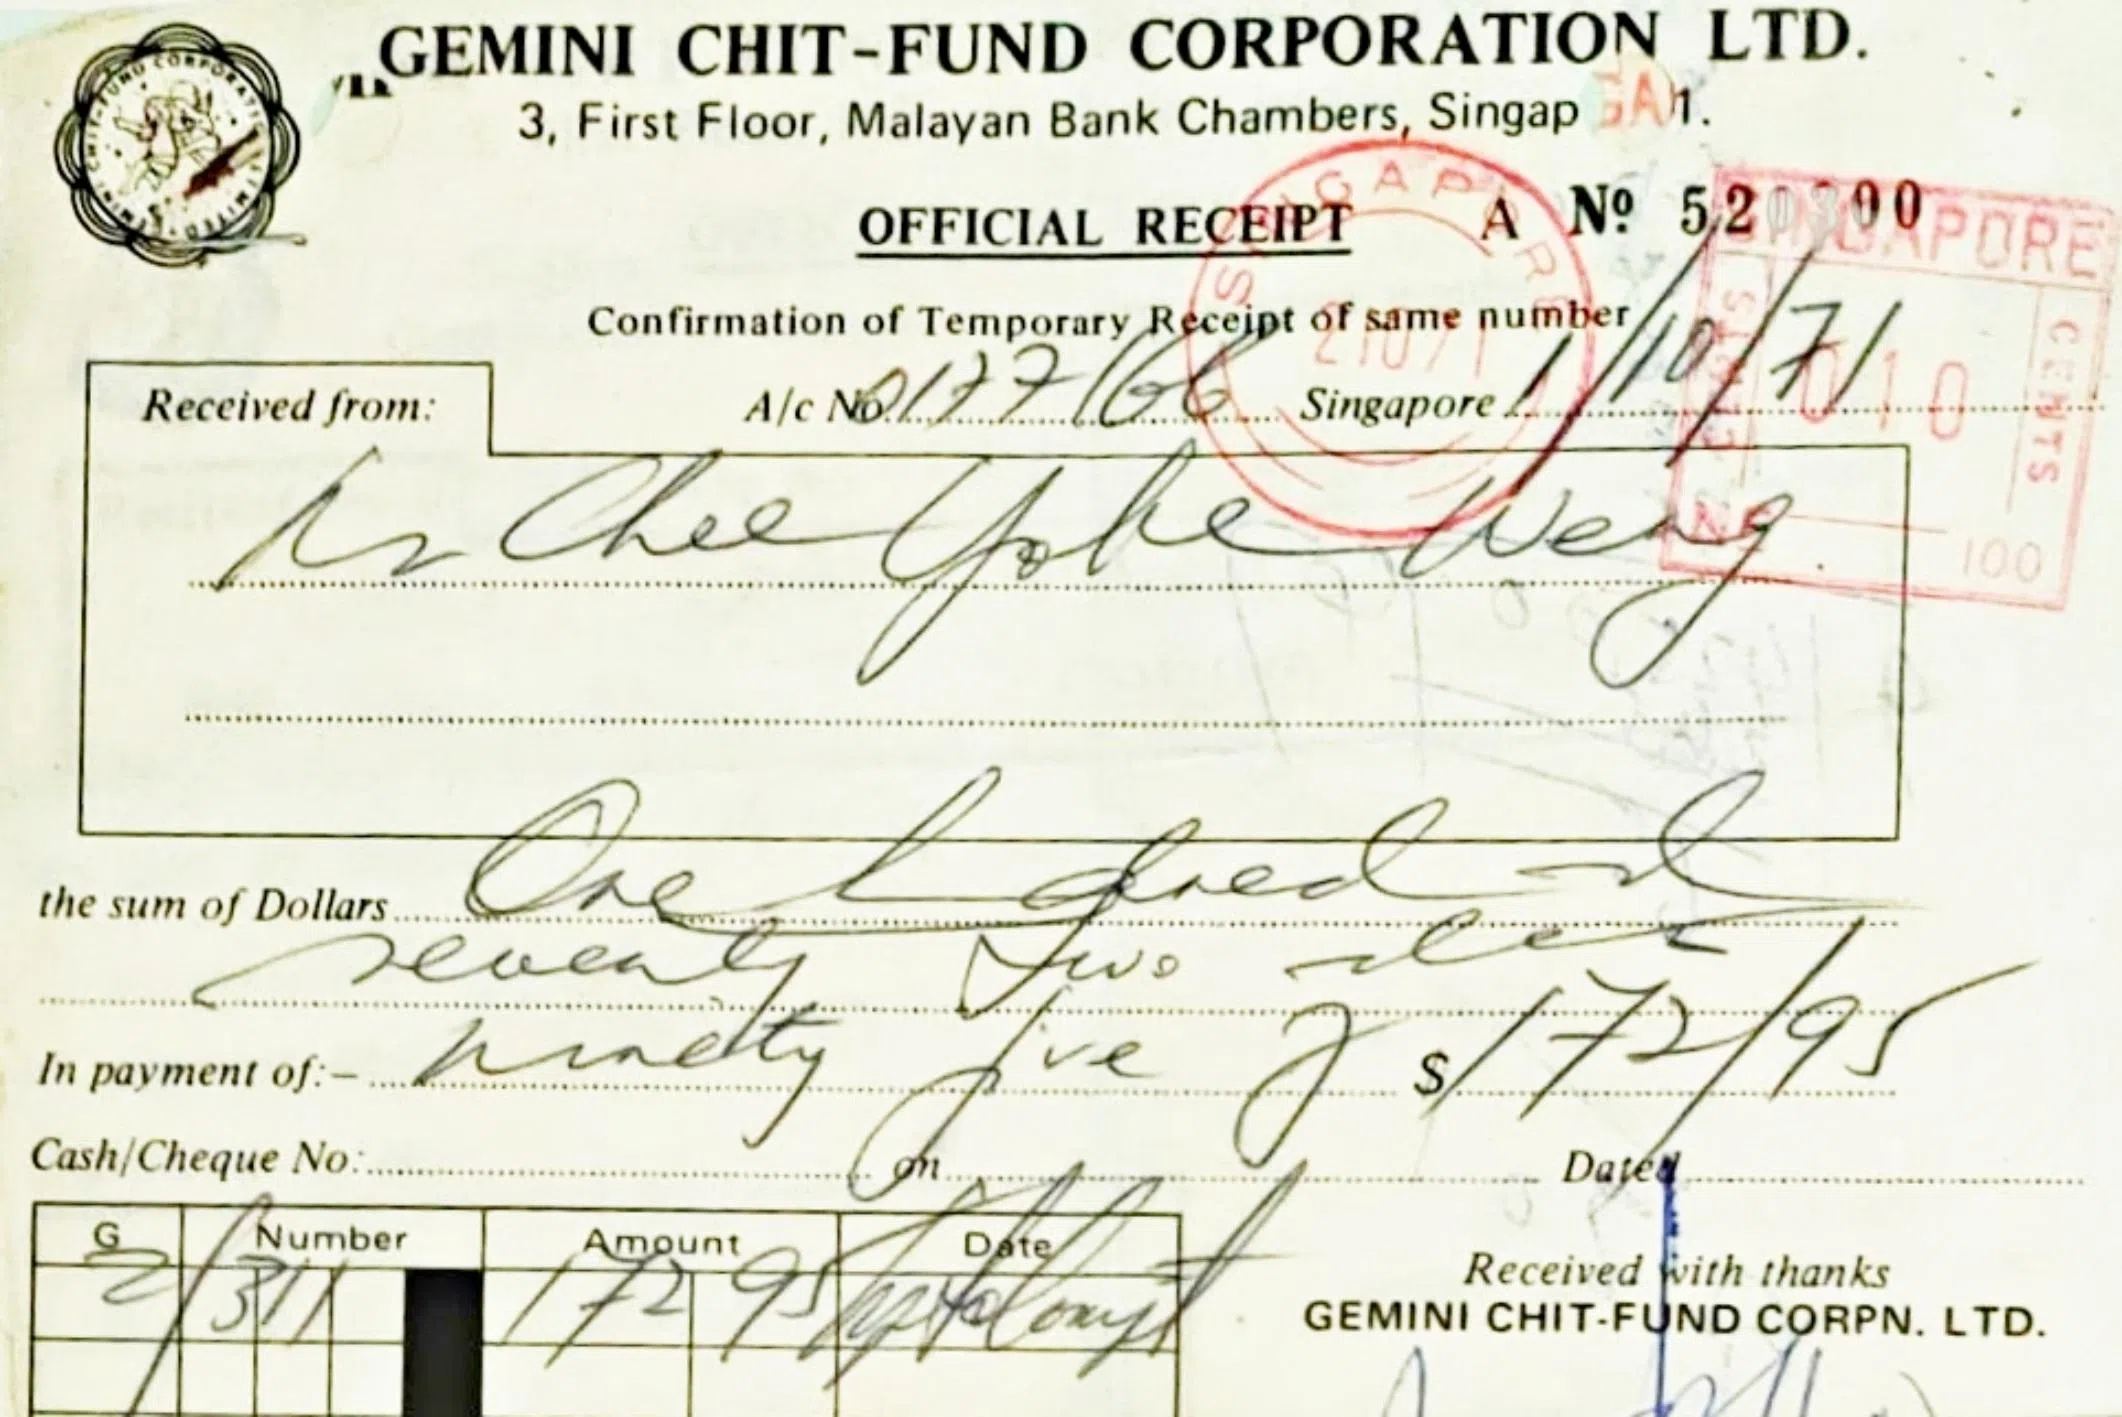 GEMINI CHIT-FUND CORPORATION LTD.
3, First Floor, Malayan Bank Chambers, Singap GA 1.
OFFICIAL RECEIPT A No 520300
Confirmation of Temporary Receipt of same number
Received from: A/c No. 0177/66 Singapore 1/10/71
SINGAPORE
21071
SINGAPORE
CENTS
010
100
Chee Yoke Weng
the sum of Dollars One hundred and
seventy two
In payment of:- ninety five $172/95
Cash/Cheque No: on Dated
G Number Amount Date
2 311 172 95
Received with thanks
GEMINI CHIT-FUND CORPN. LTD.